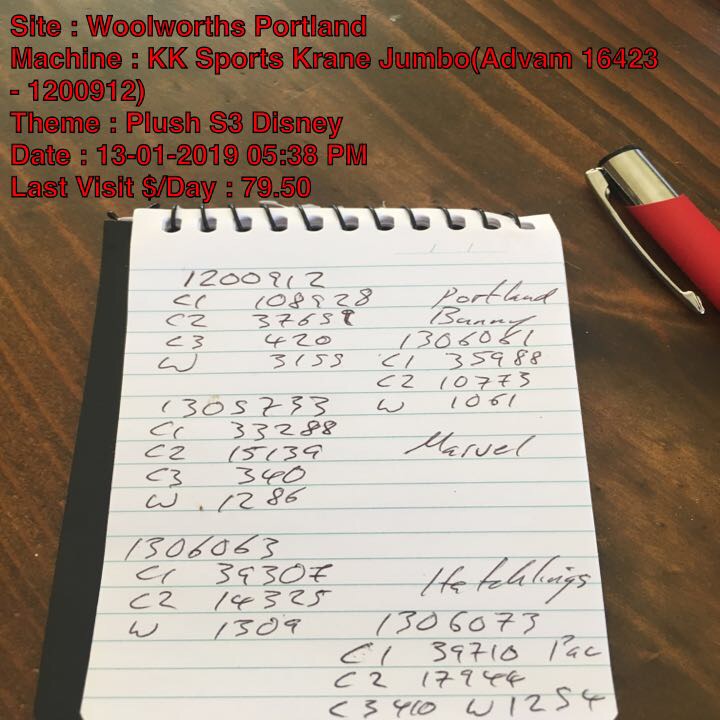 Site : Woolworths Portland
Machine : KK Sports Krane Jumbo(Advam 16423
- 1200912)
Theme : Plush S3 Disney
Date : 13-01-2019 05:38 PM
Last Visit $/Day : 79.50
1200912
C1 108928 Portland
C2 37651 Bunny
C3 420 1306061
W 3155 C1 35988
C2 10773
1305733 W 1061
C1 33288
C2 15139 Marvel
C3 340
W 1286
1306063
C1 39307 Hatchlings
C2 14325
W 1309 1306073
C1 39710 Pac
C2 17944
C3 410 W 1254